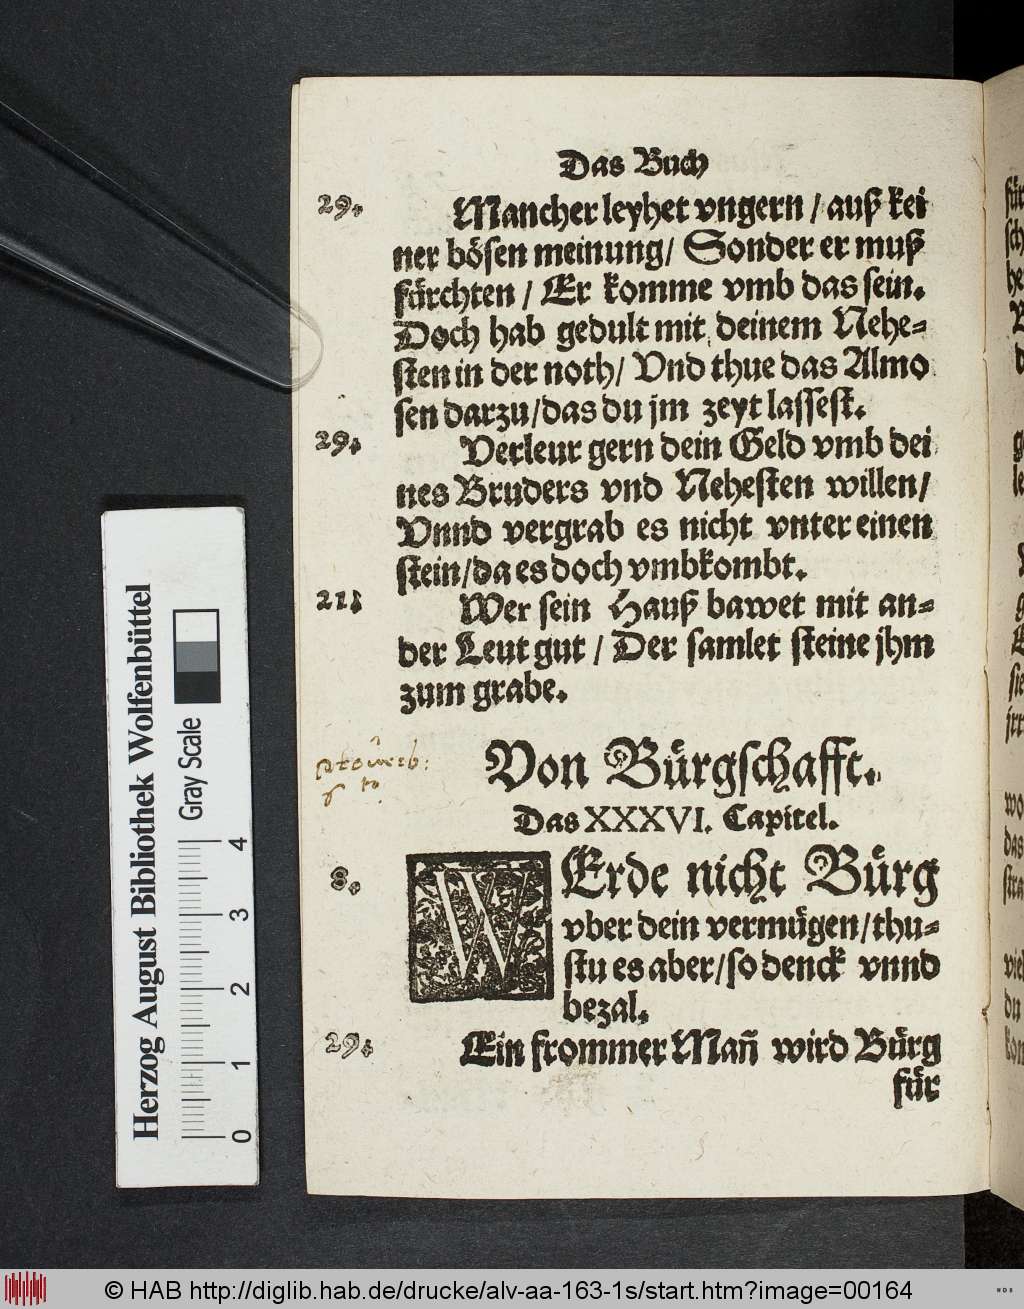 Das Buch
29. Mancher leyhet vngern / auß kei
ner bösen meinung/ Sonder er muß
fürchten / Er komme vmb das sein.
Doch hab gedult mit deinem Nehe=
sten in der noth/ Vnd thue das Almo
sen darzu/das du jm zeyt lassest.
29. Verleur gern dein Geld vmb dei
nes Bruders vnd Nehesten willen/
Vnnd vergrab es nicht vnter einen
stein/da es doch vmbkombt.
21. Wer sein Hauß bawet mit an=
der Leut gut / Der samlet steine jhm
zum grabe.
Von Bürgschafft.
Das XXXVI. Capitel.
8. WErde nicht Bürg
vber dein vermügen/thu=
stu es aber/so denck vnnd
bezal.
29. Ein frommer Mañ wird Bürg
für
Herzog August Bibliothek Wolfenbüttel
Gray Scale
0 1 2 3 4
© HAB http://diglib.hab.de/drucke/alv-aa-163-1s/start.htm?image=00164